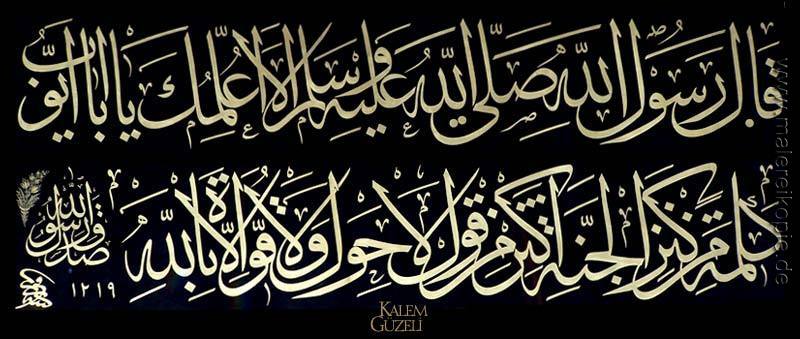 قال رسول الله صلى الله عليه وسلم الا اعلمك يا ابا ايوب
كلمة من كنز الجنة اكثر من قول لا حول ولا قوة الا بالله
صدق رسول الله
١٢١٩
KALEM
GÜZELİ
www.malereikopie.de